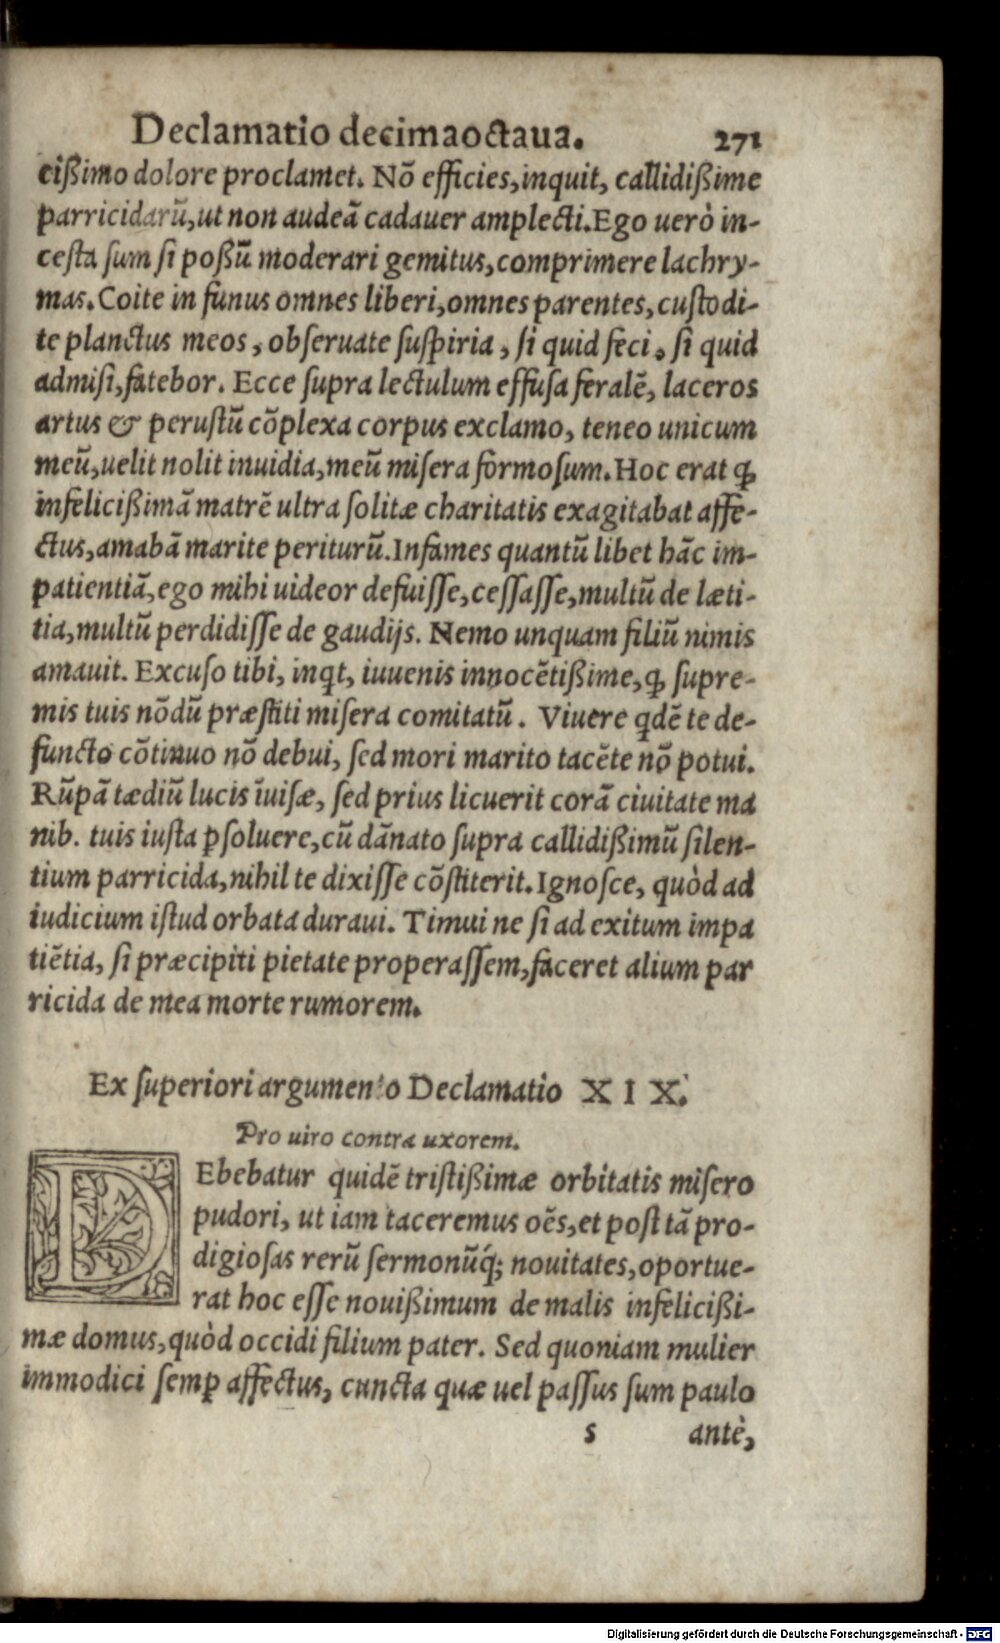 Declamatio decimaoctaua. 271
cißimo dolore proclamet. Nō efficies, inquit, callidißime
parricidarū, ut non audeā cadauer amplecti. Ego uerò in-
cesta sum si poßū moderari gemitus, comprimere lachry-
mas. Coite in funus omnes liberi, omnes parentes, custodi-
te planctus meos, obseruate suspiria, si quid feci, si quid
admisi, fatebor. Ecce supra lectulum effusa feralē, laceros
artus & perustū cōplexa corpus exclamo, teneo unicum
meū, uelit nolit inuidia, meū misera formosum. Hoc erat ꝙ
infelicißimā matrē ultra solitæ charitatis exagitabat affe-
ctus, amabā marite periturū. Infames quantū libet hāc im-
patientiā, ego mihi uideor defuisse, cessasse, multū de læti-
tia, multū perdidisse de gaudijs. Nemo unquam filiū nimis
amauit. Excuso tibi, inqt, iuuenis innocētißime, ꝙ supre-
mis tuis nōdū præstiti misera comitatū. Viuere qdē te de-
functo cōtinuo nō debui, sed mori marito tacēte nō potui.
Rūpā tædiū lucis īuisæ, sed prius licuerit corā ciuitate ma
nib. tuis iusta ꝑsoluere, cū dānato supra callidißimū silen-
tium parricida, nihil te dixisse cōstiterit. Ignosce, quòd ad
iudicium istud orbata duraui. Timui ne si ad exitum impa
tiētia, si præcipiti pietate properassem, faceret alium par
ricida de mea morte rumorem.
Ex superiori argumento Declamatio XIX.
Pro uiro contra uxorem.
DEbebatur quidē tristißimæ orbitatis misero
pudori, ut iam taceremus oēs, et post tā pro-
digiosas rerū sermonūq́; nouitates, oportue-
rat hoc esse nouißimum de malis infelicißi-
mæ domus, quòd occidi filium pater. Sed quoniam mulier
immodici semꝑ affectus, cuncta quæ uel passus sum paulo
s antè,
Digitalisierung gefördert durch die Deutsche Forschungsgemeinschaft - DFG